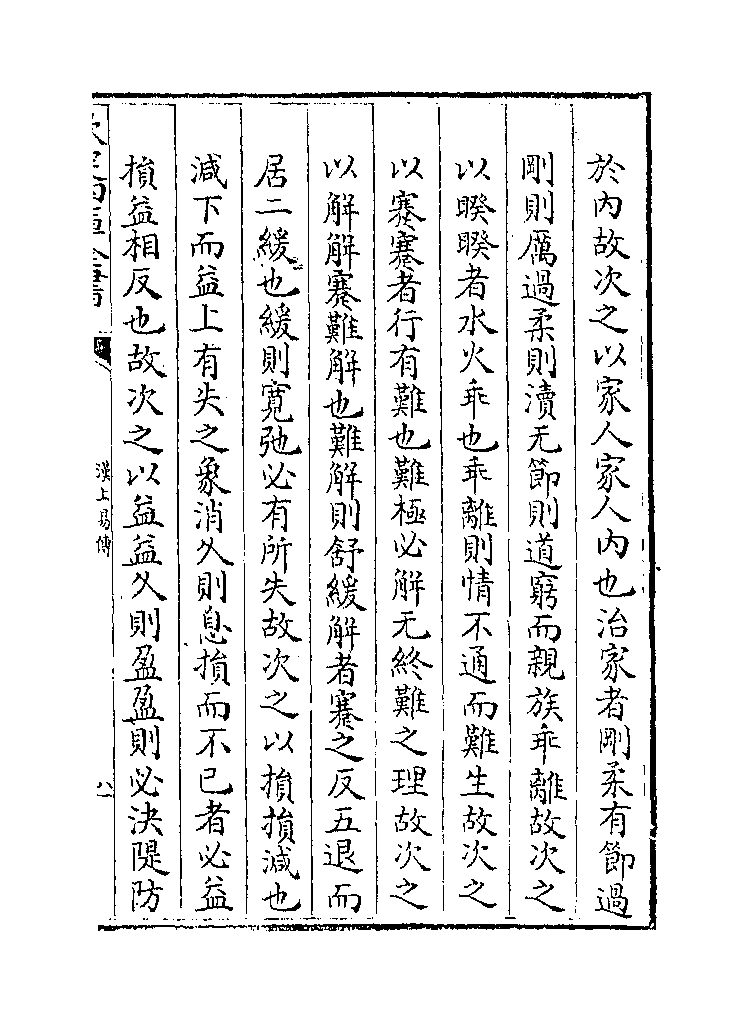 於内故次之以家人家人内也治家者剛柔有節過
剛則厲過柔則瀆无節則道窮而親族乖離故次之
以睽睽者水火乖也乖離則情不通而難生故次之
以蹇蹇者行有難也難極必解无終難之理故次之
以解解蹇難解也難解則舒緩解者蹇之反五退而
居二緩也緩則寛弛必有所失故次之以損損減也
減下而益上有失之象消久則息損而不已者必益
損益相反也故次之以益益久則盈盈則必決隄防
欽定四庫全書
漢上易傳
八